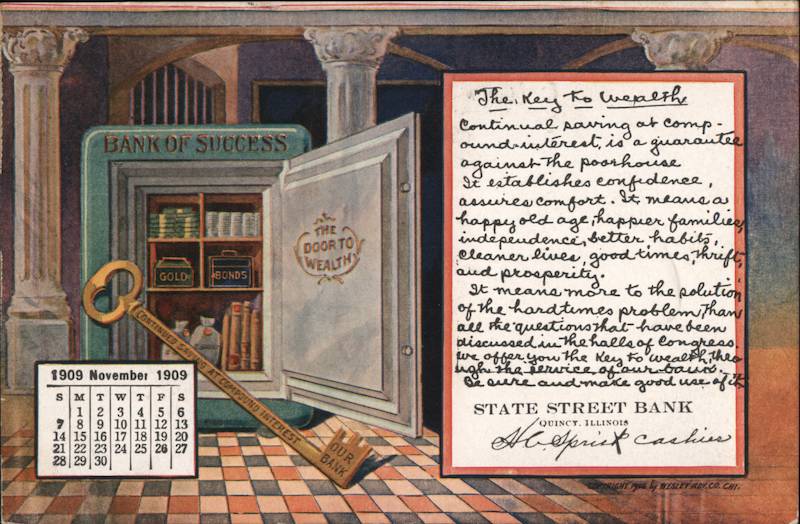 BANK OF SUCCESS
THE
DOOR TO
WEALTH
GOLD
BONDS
CONTINUED SAVING AT COMPOUND INTEREST
OUR
BANK
1909 November 1909
S M T W T F S
1 2 3 4 5 6
7 8 9 10 11 12 13
14 15 16 17 18 19 20
21 22 23 24 25 26 27
28 29 30
The Key to Wealth
Continual saving at comp-
ound interest, is a guarantee
against the poorhouse
It establishes confidence,
assures comfort. It means a
happy old age, happier families,
independence, better habits,
cleaner lives, good times, thrift,
and prosperity.
It means more to the solution
of the hard times problem, than
all the questions that have been
discussed in the halls of Congress.
We offer you the Key to wealth, thro
ugh the service of our bank.
Be sure and make good use of it
STATE STREET BANK
QUINCY, ILLINOIS
Cashier
COPYRIGHT by WESLEY ADV. CO. CHI.